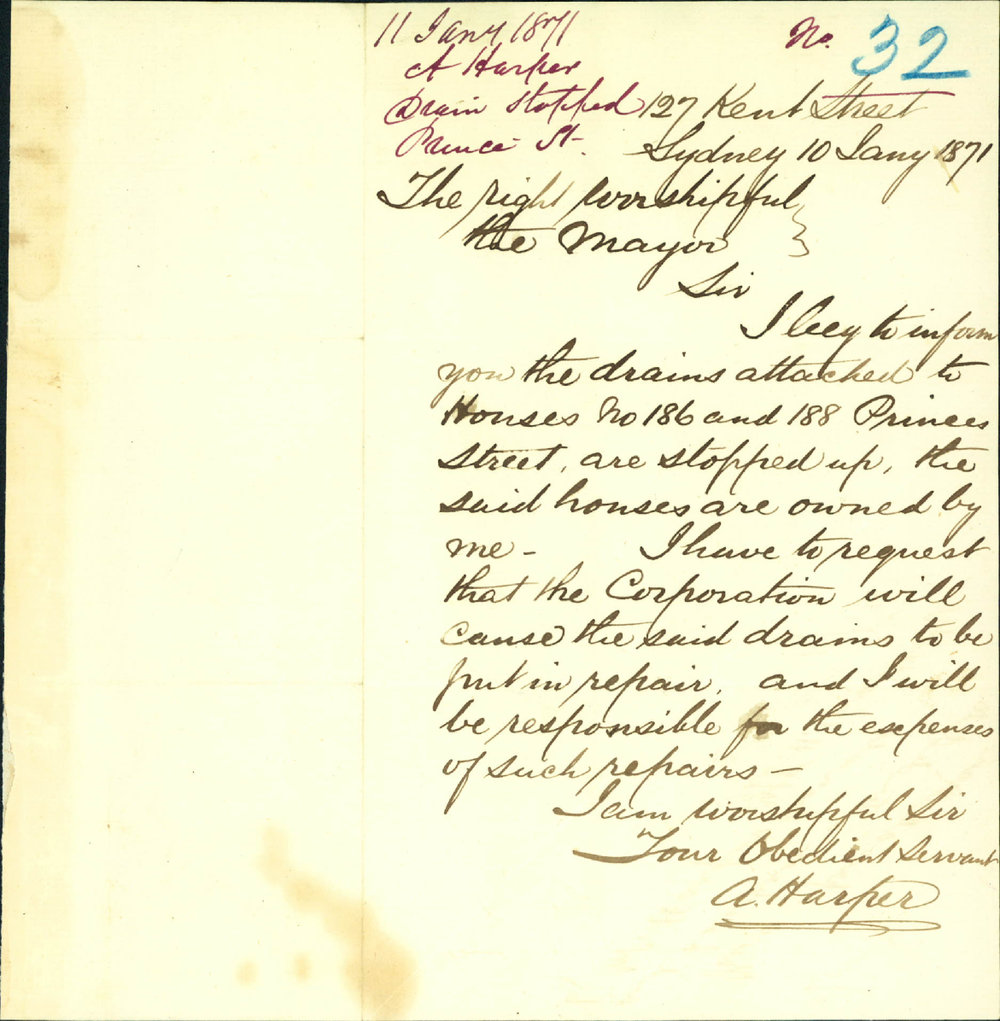 11 Jany 1871
A Harper
Drain stopped
Prince St.
No. 32
127 Kent Street
Sydney 10 Jany 1871
The right worshipful
the Mayor
Sir
I beg to inform
you the drains attached to
Houses No 186 and 188 Princes
Street, are stopped up, the
said houses are owned by
me - I have to request
that the Corporation will
cause the said drains to be
put in repair, and I will
be responsible for the expenses
of such repairs -
I am worshipful Sir
Your Obedient Servant
A. Harper